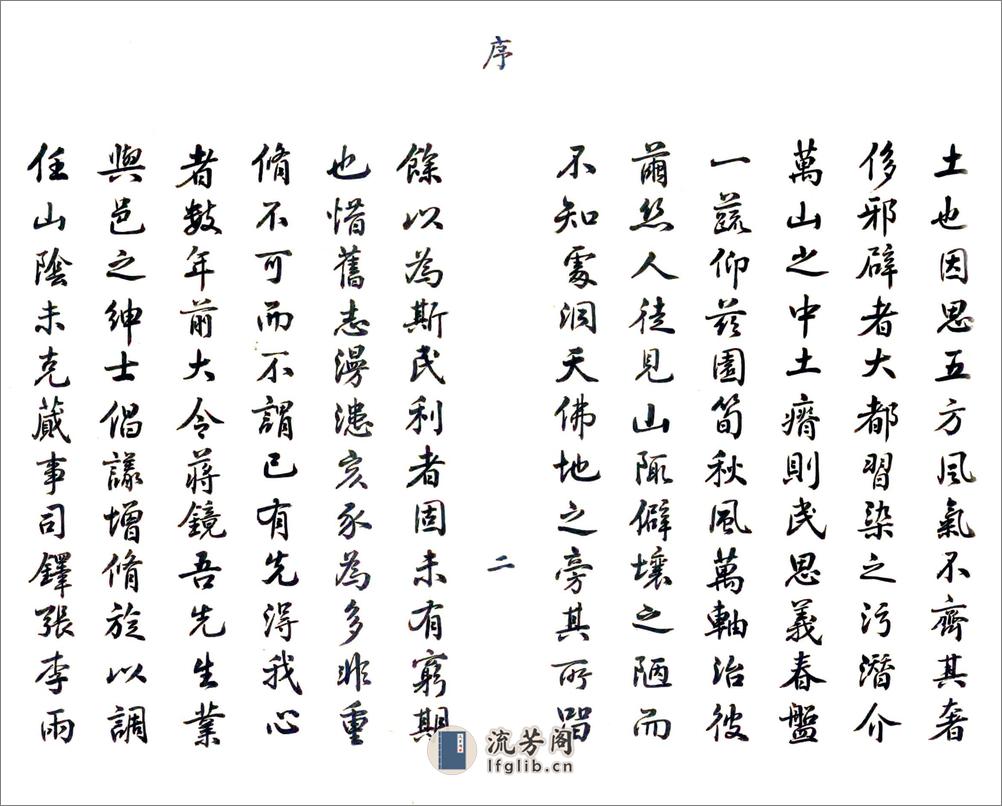 土也因思五方風氣不齊其奢
侈邪辟者大都習染之污潛介
萬山之中土瘠則民思義春盤
一蔬仰茲園筍秋風萬軸治彼
薾然人徒見山陬僻壤之陋而
不知處洞天佛地之旁其所留
序
二
餘以為斯民利者固未有窮期
也惜舊志漫漶亥豕為多非重
脩不可而不謂已有先得我心
者數年前大令蔣鏡吾先生業
與邑之紳士倡議增脩旋以調
任山陰未克蕆事司鐸張李雨
流芳阁
lfglib.cn